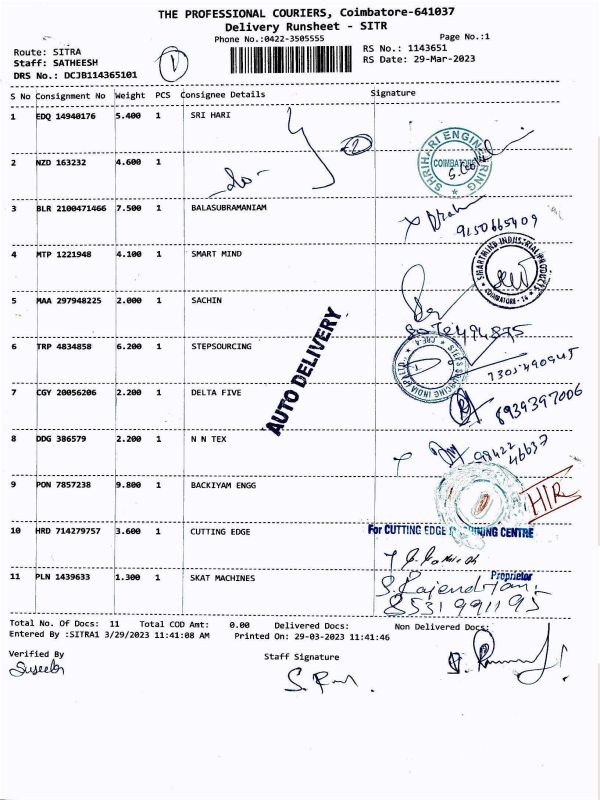 THE PROFESSIONAL COURIERS, Coimbatore-641037
Delivery Runsheet - SITR
Phone No.:0422-3505555
Page No.:1
Route: SITRA
Staff: SATHEESH
DRS No.: DCJB114365101
RS No.: 1143651
RS Date: 29-Mar-2023
1
S No Consignment No Weight PCS Consignee Details Signature
1 EDQ 14940176 5.400 1 SRI HARI
2 NZD 163232 4.600 1 -do-
SHRIHARI ENGINEERING COIMBATORE
3 BLR 2100471466 7.500 1 BALASUBRAMANIAM
9150665409
4 MTP 1221948 4.100 1 SMART MIND
SMARTMIND INDUSTRIAL PRODUCTS COIMBATORE - 14
5 MAA 297948225 2.000 1 SACHIN
AUTO DELIVERY
6 TRP 4834858 6.200 1 STEPSOURCING
7 CGY 20056206 2.200 1 DELTA FIVE
8939397006
8 DDG 386579 2.200 1 N N TEX
98422
46637
9 PON 7857238 9.800 1 BACKIYAM ENGG
HIR
10 HRD 714279757 3.600 1 CUTTING EDGE
For CUTTING EDGE CENTRE
11 PLN 1439633 1.300 1 SKAT MACHINES
Proprietor
S. Rajendran
8531991195
Total No. Of Docs: 11 Total COD Amt: 0.00 Delivered Docs: Non Delivered Docs:
Entered By :SITRA1 3/29/2023 11:41:08 AM Printed On: 29-03-2023 11:41:46
Verified By
Suseela
Staff Signature